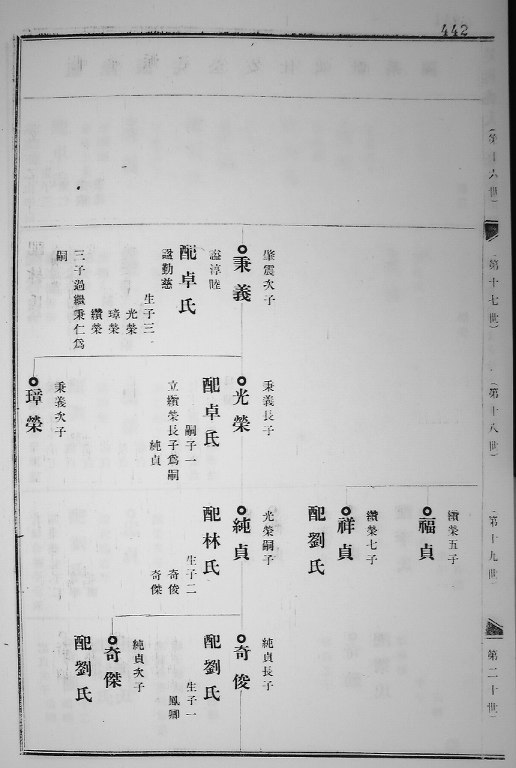 442
（第十六世）
（第十七世）
（第十八世）
（第十九世）
（第二十世）
肇震次子
秉義
諡淳睦
配卓氏
諡勤慈
生子三
光榮
璋榮
纘榮
三子過繼秉仁爲
嗣
秉義長子
光榮
配卓氏
嗣子一
立纘榮長子爲嗣
純貞
秉義次子
璋榮
纘榮五子
福貞
纘榮七子
祥貞
配劉氏
光榮嗣子
純貞
配林氏
生子二
奇俊
奇傑
純貞長子
奇俊
配劉氏
生子一
鳳卿
純貞次子
奇傑
配劉氏